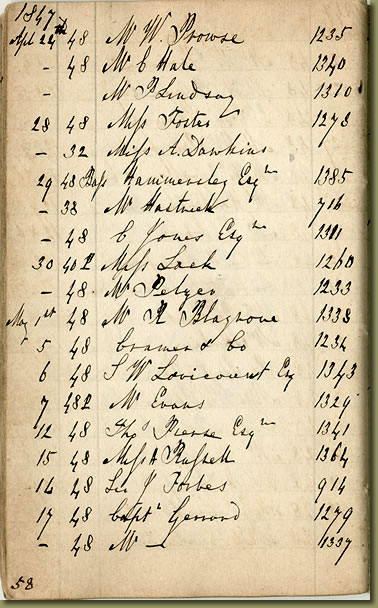 1847
Apl 24th 48 Mr W. Prowse 1235
– 48 Mr C Hale 1340
– Mr P Lindsay 1310
28 48 Miss Foster 1278
– 32 Miss A. Dawkins
29 48 Bass Hammersley Esqre 1385
– 38 Mr Hastrick 716
– 48 C Jones Esqre
30 40 P Miss Lock 1260
– 48 Mr Pelzer 1233
May 1st 48 Mr R Blagrove 1338
5 48 Cramer & Co 1234
6 48 S W Esq 1343
7 48 P Mr Evans 1329
12 48 Thos Pierse Esqre 1341
15 48 Miss A Russell 1364
16 48 Forbes 914
17 48 Captn Gerrard 1279
– 48 Mr — 1337
58